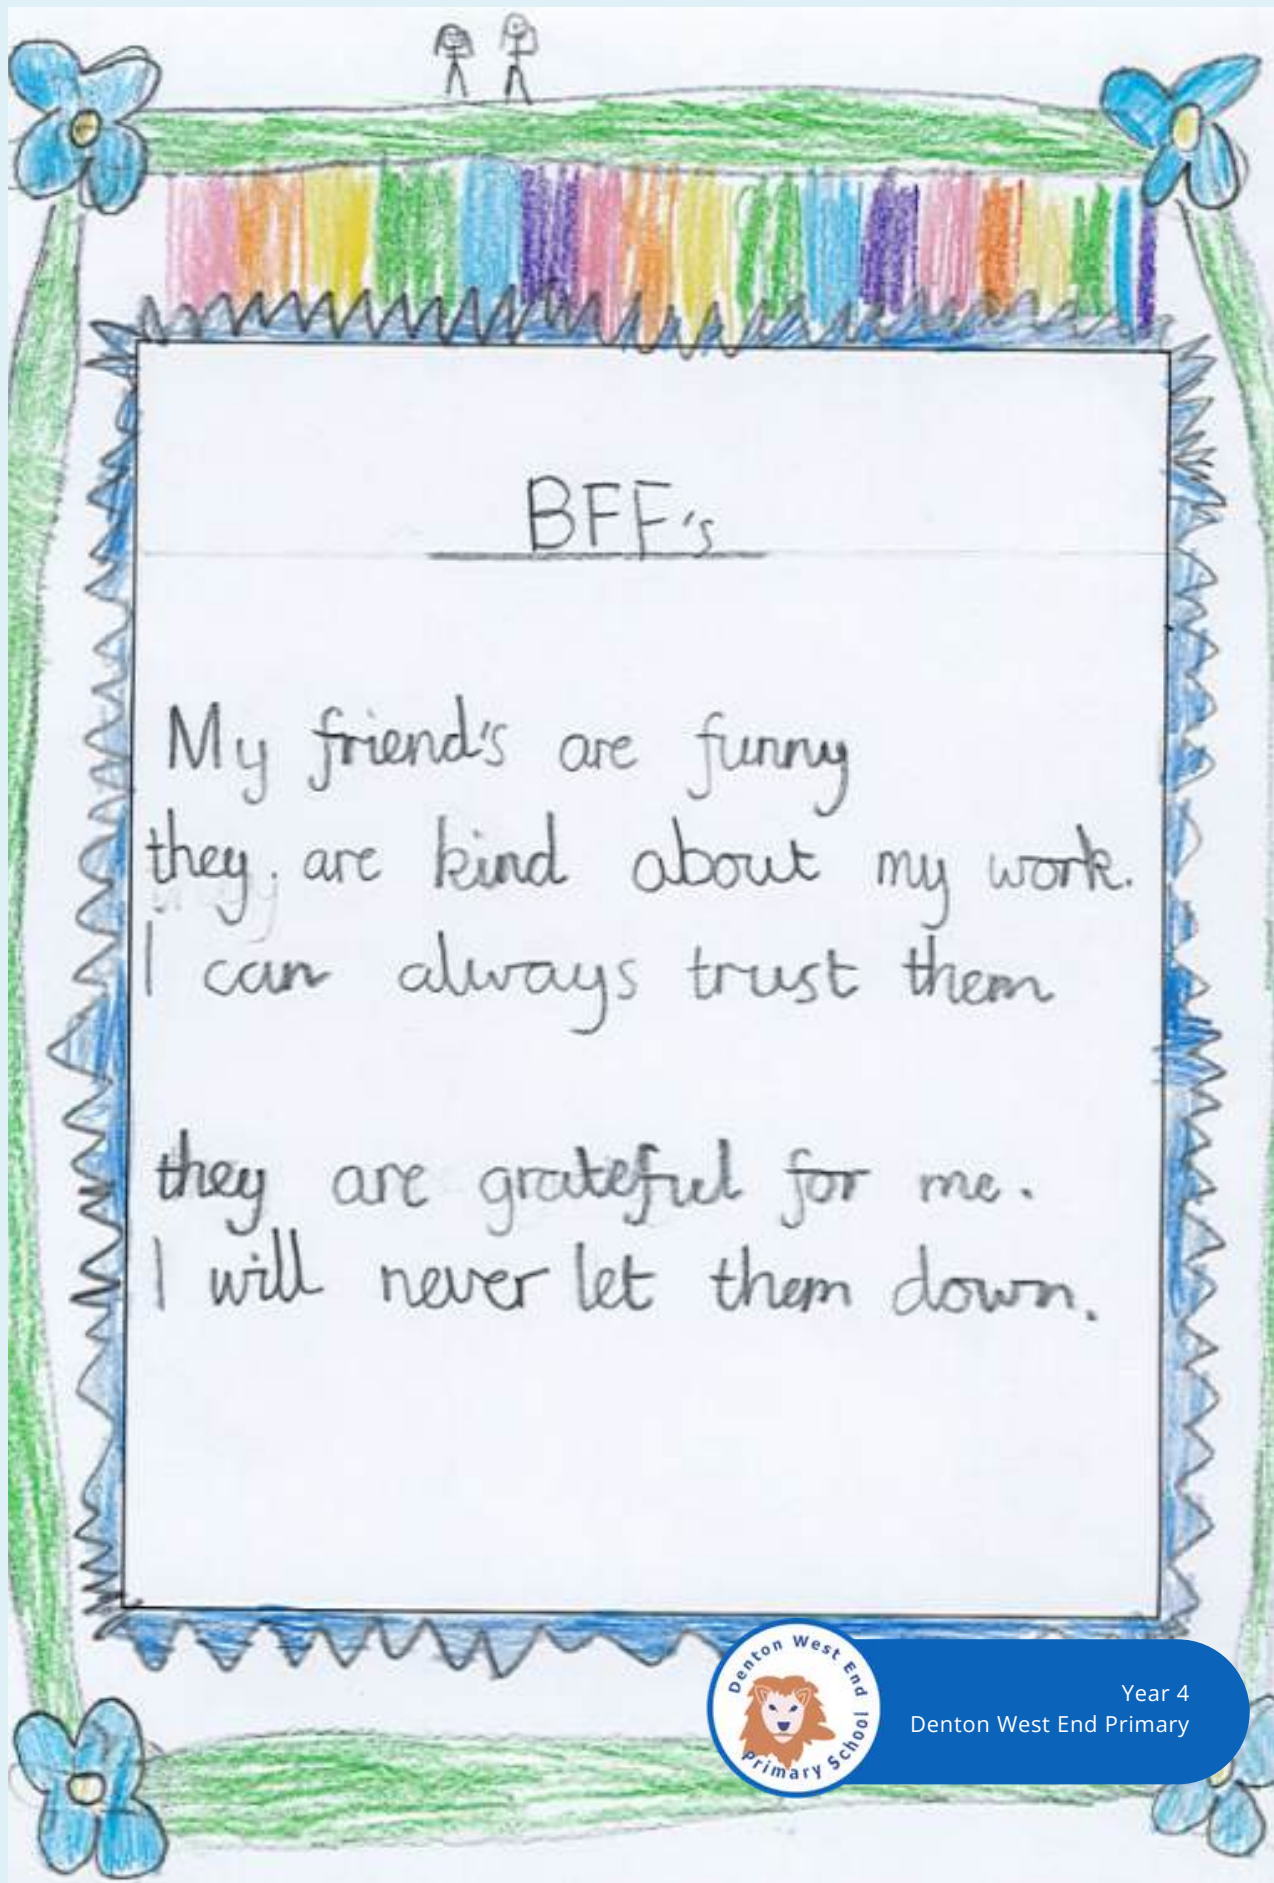 BFF's
My friend's are funny
they. are kind about my work.
I can always trust them
they are grateful for me.
I will never let them down.
Denton West End
Primary School
Year 4
Denton West End Primary